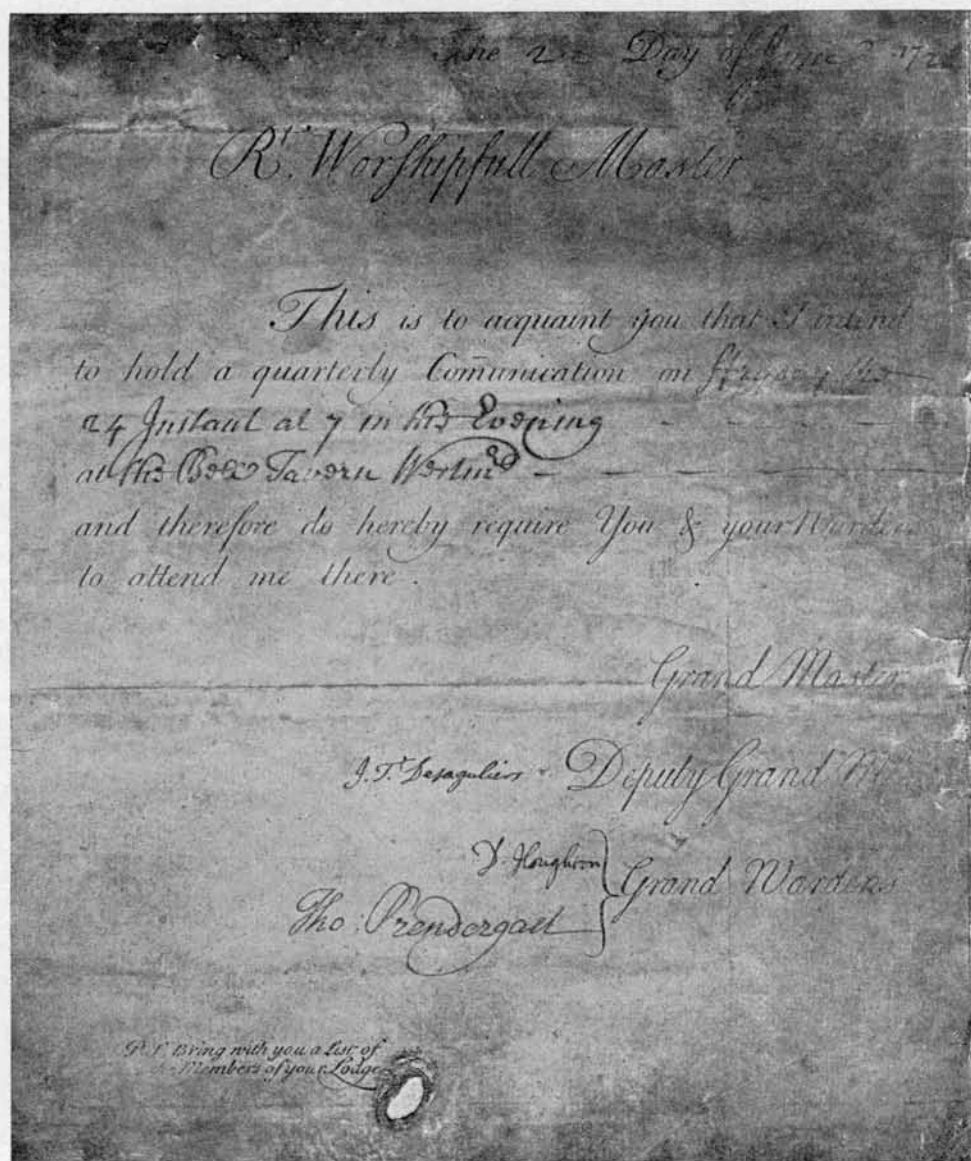 The Day of June 172
Rt. Worshipfull Master
This is to acquaint you that I intend
to hold a quarterly Com̄unication on ffryday the
24 Instant at 7 in the Evening
at the Bell Tavern Westmr
and therefore do hereby require You & your Wardens
to attend me there.
Grand Master
J. T. Desaguliers Deputy Grand Mr
D. Houghton
Grand Wardens
Tho: Prendergast
P.S. Bring with you a List of
the Members of your Lodge